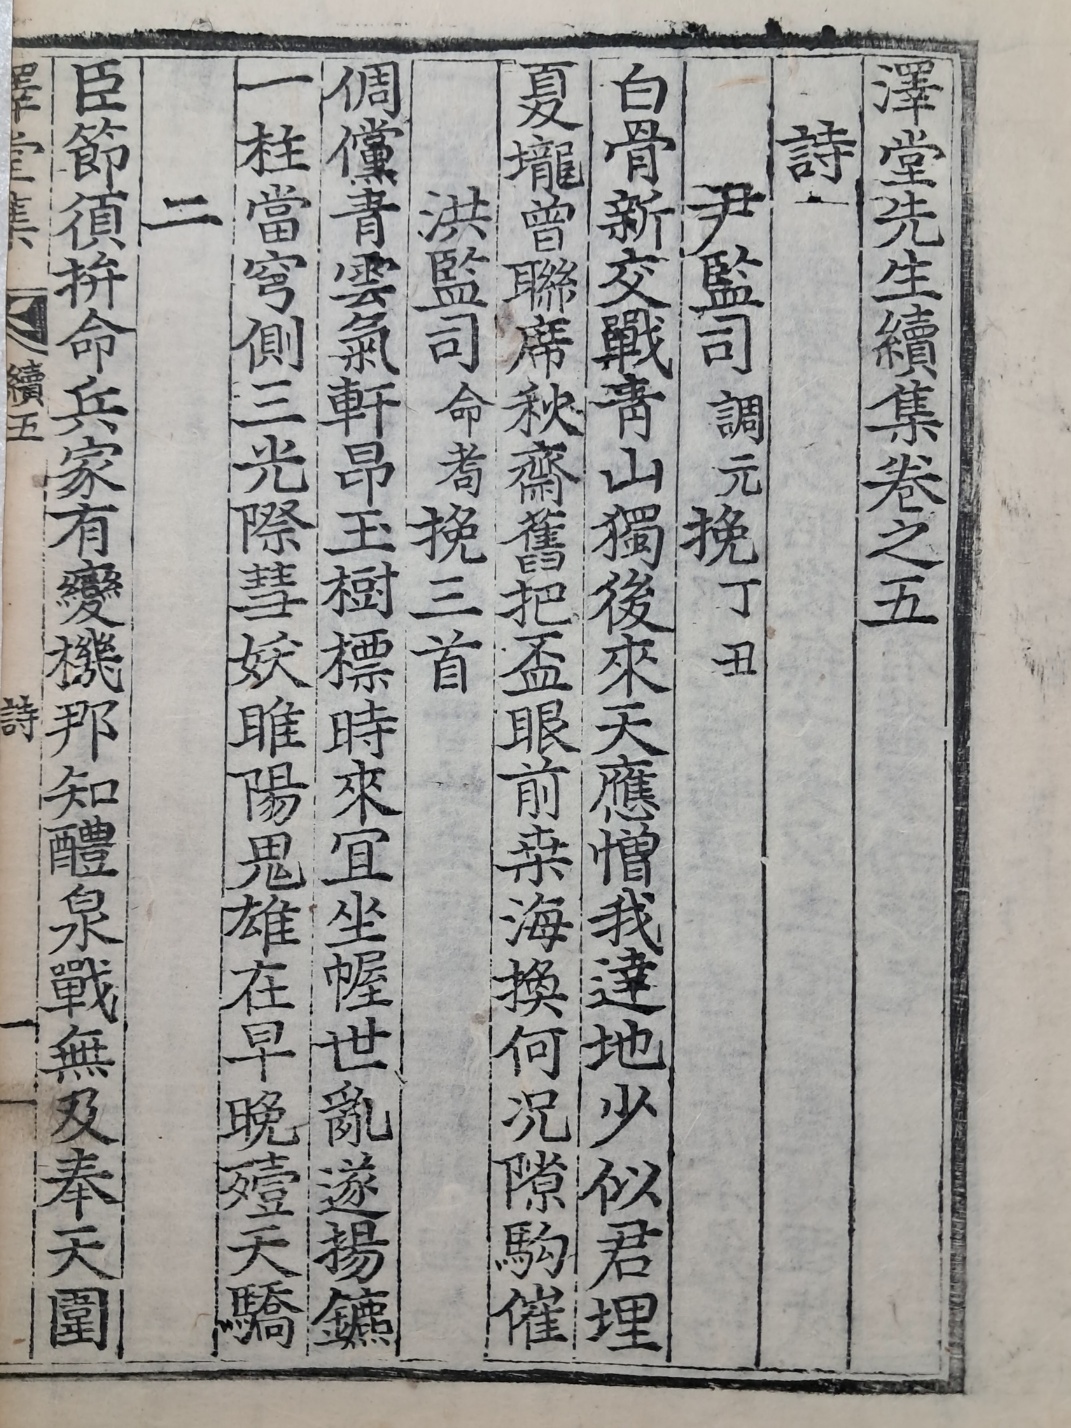 澤堂先生續集卷之五
詩
尹監司調元挽丁丑
白骨新交戰青山獨後來天應憎我達地少似君埋
夏壠曾聯席秋齋舊把盃眼前桒海換何況隙駒催
洪監司命耉挽三首
倜儻青雲氣軒昂玉樹標時來宜坐幄世亂遂揚鑣
一柱當穹側三光際彗妖睢陽鬼雄在早晚殪天驕
二
臣節須拚命兵家有變機那知醴泉戰無及奉天圍
澤堂集 續五 詩 一